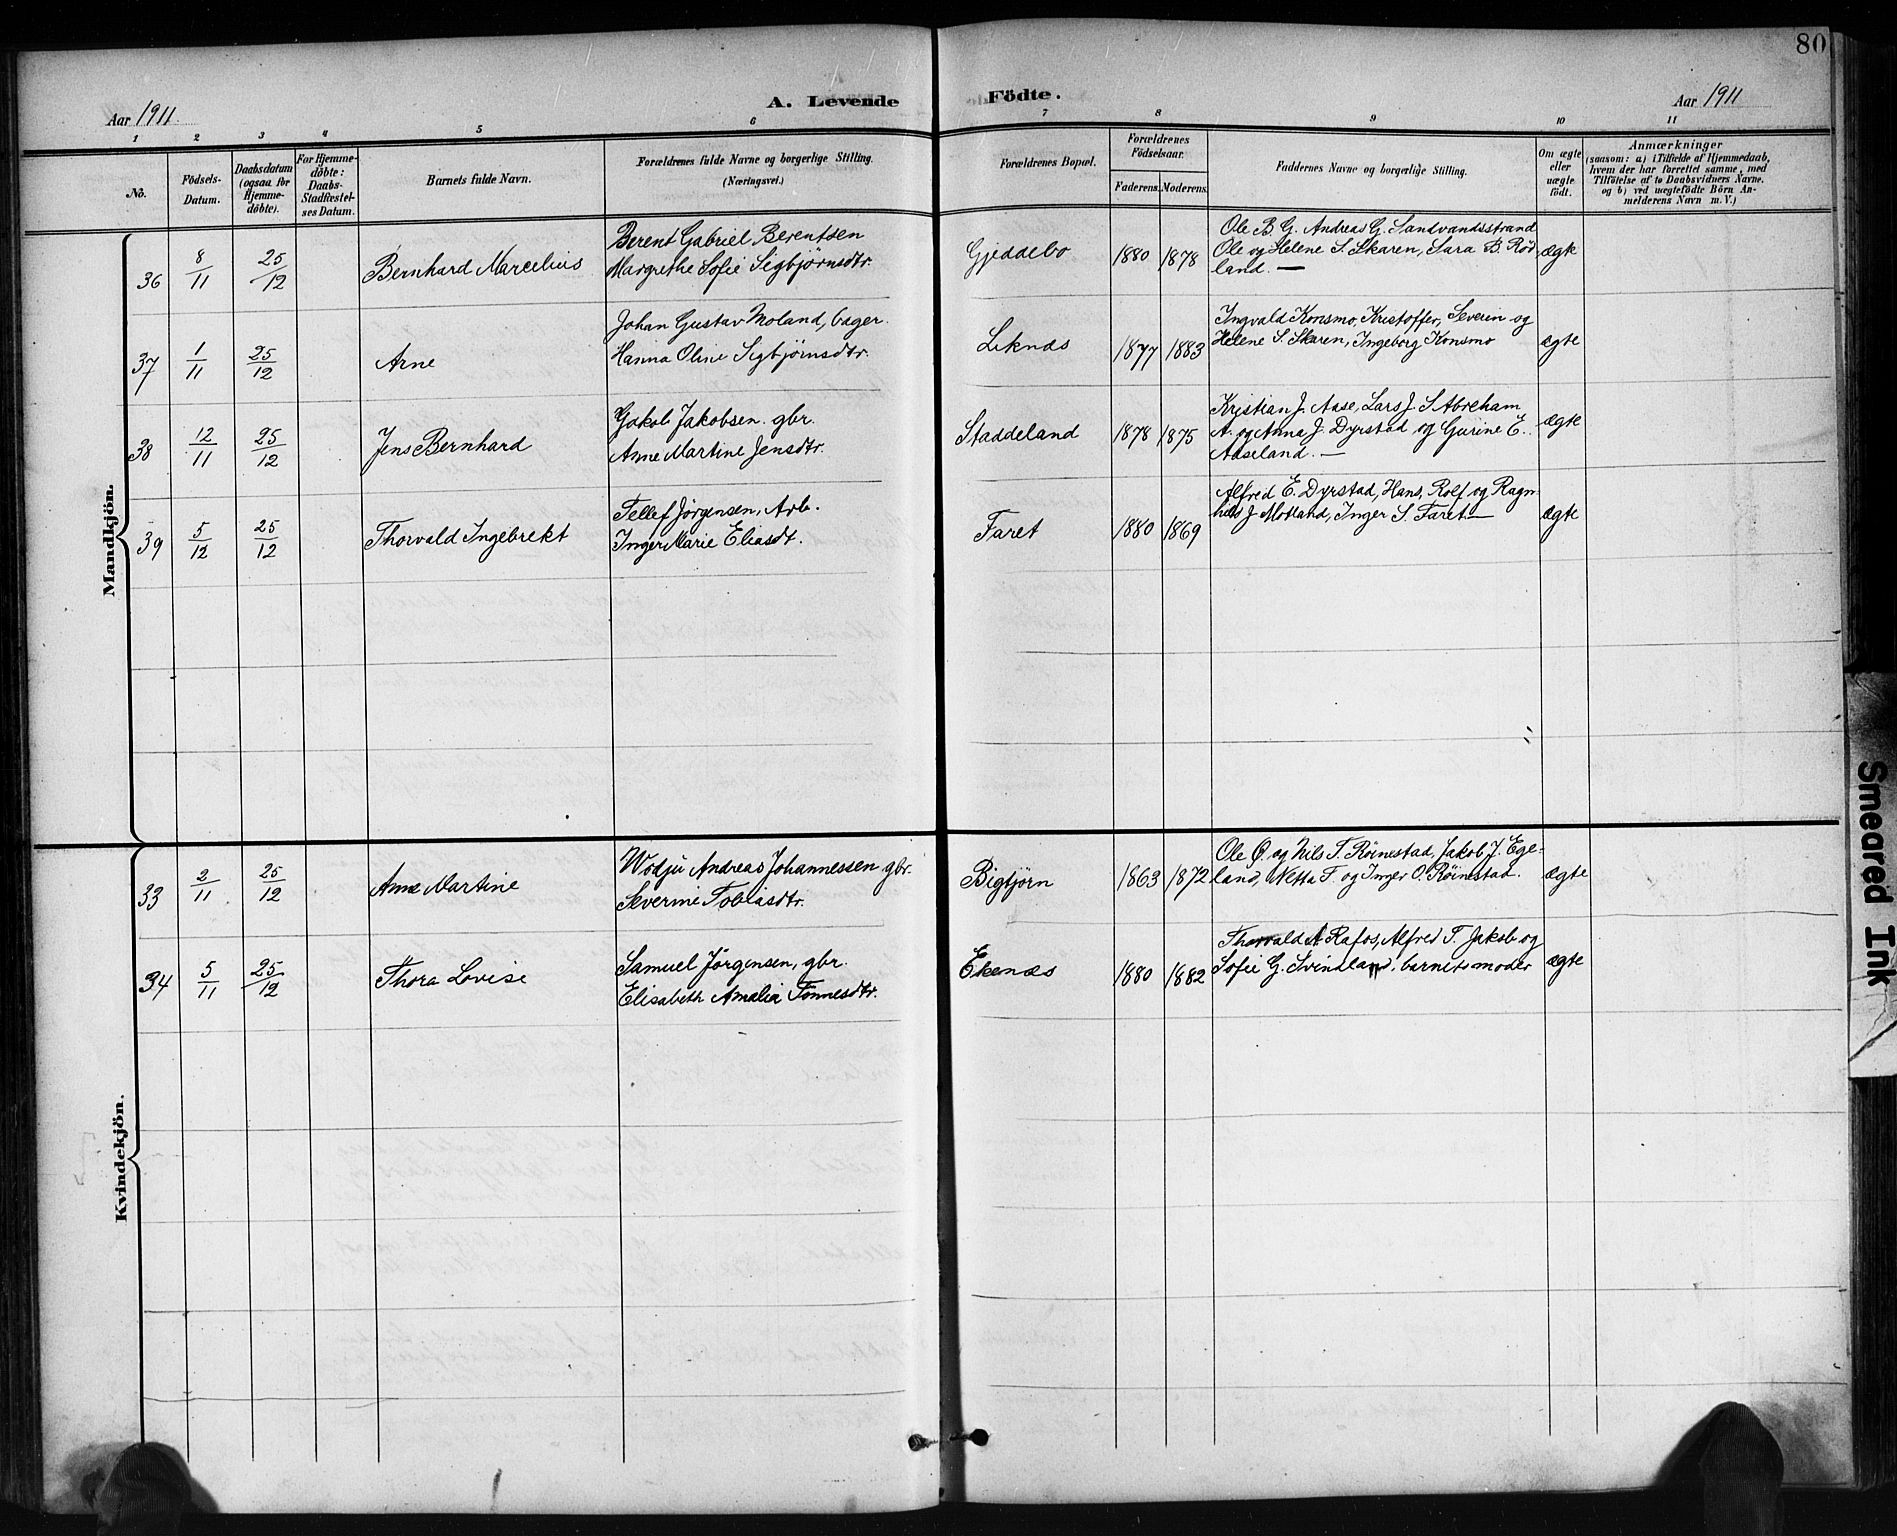 80
Aar 1911
A. Levende Födte.
Aar 1911
1 2 3 4 5 6 7 8 9 10 11
No.
Födsels-
Datum.
Daabsdatum
(ogsaa for
Hjemme-
döbte).
For Hjemme-
döbte:
Daabs-
Stadfæstel-
ses Datum.
Barnets fulde Navn.
Forældrenes fulde Navne og borgerlige Stilling.
(Næringsvei.)
Forældrenes Bopæl.
Forældrenes
Födselsaar.
Faderens. Moderens.
Faddernes Navne og borgerlige Stilling.
Om ægte
eller
uægte
födt.
Anmærkninger
(saasom: a) i Tilfælde af Hjemmedaab,
hvem der har forrettet samme, med
Tilföielse af to Daabsvidners Navne.
og b) ved uægtefödte Börn An-
melderens Navn m. V.)
Mandkjön.
36 8/11 25/12 Bernhard Marcelius
Berent Gabriel Berentsen
Margrethe Sofie Sigbjørnsdtr.
Gjeddebo 1880 1878
Ole B. G. Andreas G. Sandvandsstrand
Ole og Helene S. Skaren, Sara B. Rød
land. —
ægte
37 1/11 25/12 Arne
Johan Gustav Moland, bager.
Hanna Oline Sigbjørnsdtr.
Liknæs 1877 1883
Ingvald Konsmo, Kristoffer, Severin og
Helene S. Skaren, Ingeborg Konsmo
ægte
38 12/11 25/12 Jens Bernhard
Jakob Jakobsen. gbr.
Anne Martine Jensdtr.
Staddeland 1878 1875
Kristian J. Aase, Lars J. S Abreham
A. og Anna J. Dyrstad og Gurine E.
Aaseland. —
ægte
39 5/12 25/12 Thorvald Ingebrekt
Tellef Jørgensen, Arb.
Inger Marie Eliasdt.
Faret 1880 1869
Alfred E. Dyrstad, Hans, Rolf og Ragn-
hild J. Motland, Inger S. Faret —
ægte
Kvindekjön.
33 2/11 25/12 Anne Martine
Andreas Johannessen gbr.
Severine Tobiasdtr.
Bigtjørn 1863 1872
Ole Ø. og Nils T. Röinestad, Jakob J. Ege-
land, Netta T. og Inger O. Röinestad.
ægte
34 5/11 25/12 Thora Lovise
Samuel Jörgensen, gbr.
Elisabeth Amalia Tønnesdtr.
Ekenæs 1880 1882
Thorvald A Rafos, Alfred T. Jakob og
Sofie G. Svindland, barnets moder
ægte
Smeared Ink